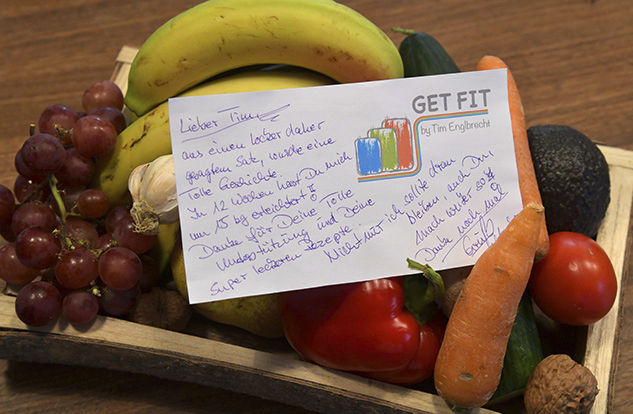 GET FIT
by Tim Englbrecht
Lieber Tim
aus einem locker daher
gesagtem Satz, wurde eine
tolle Geschichte.
In 12 Wochen hast Du mich
um 15 kg erleichtert
Danke für Deine Tolle
Unterstützung und Deine
Super leckeren Rezepte
Nicht nur ich sollte dran
bleiben, auch Du,
mach weiter so
Danke noch mal
Gruß